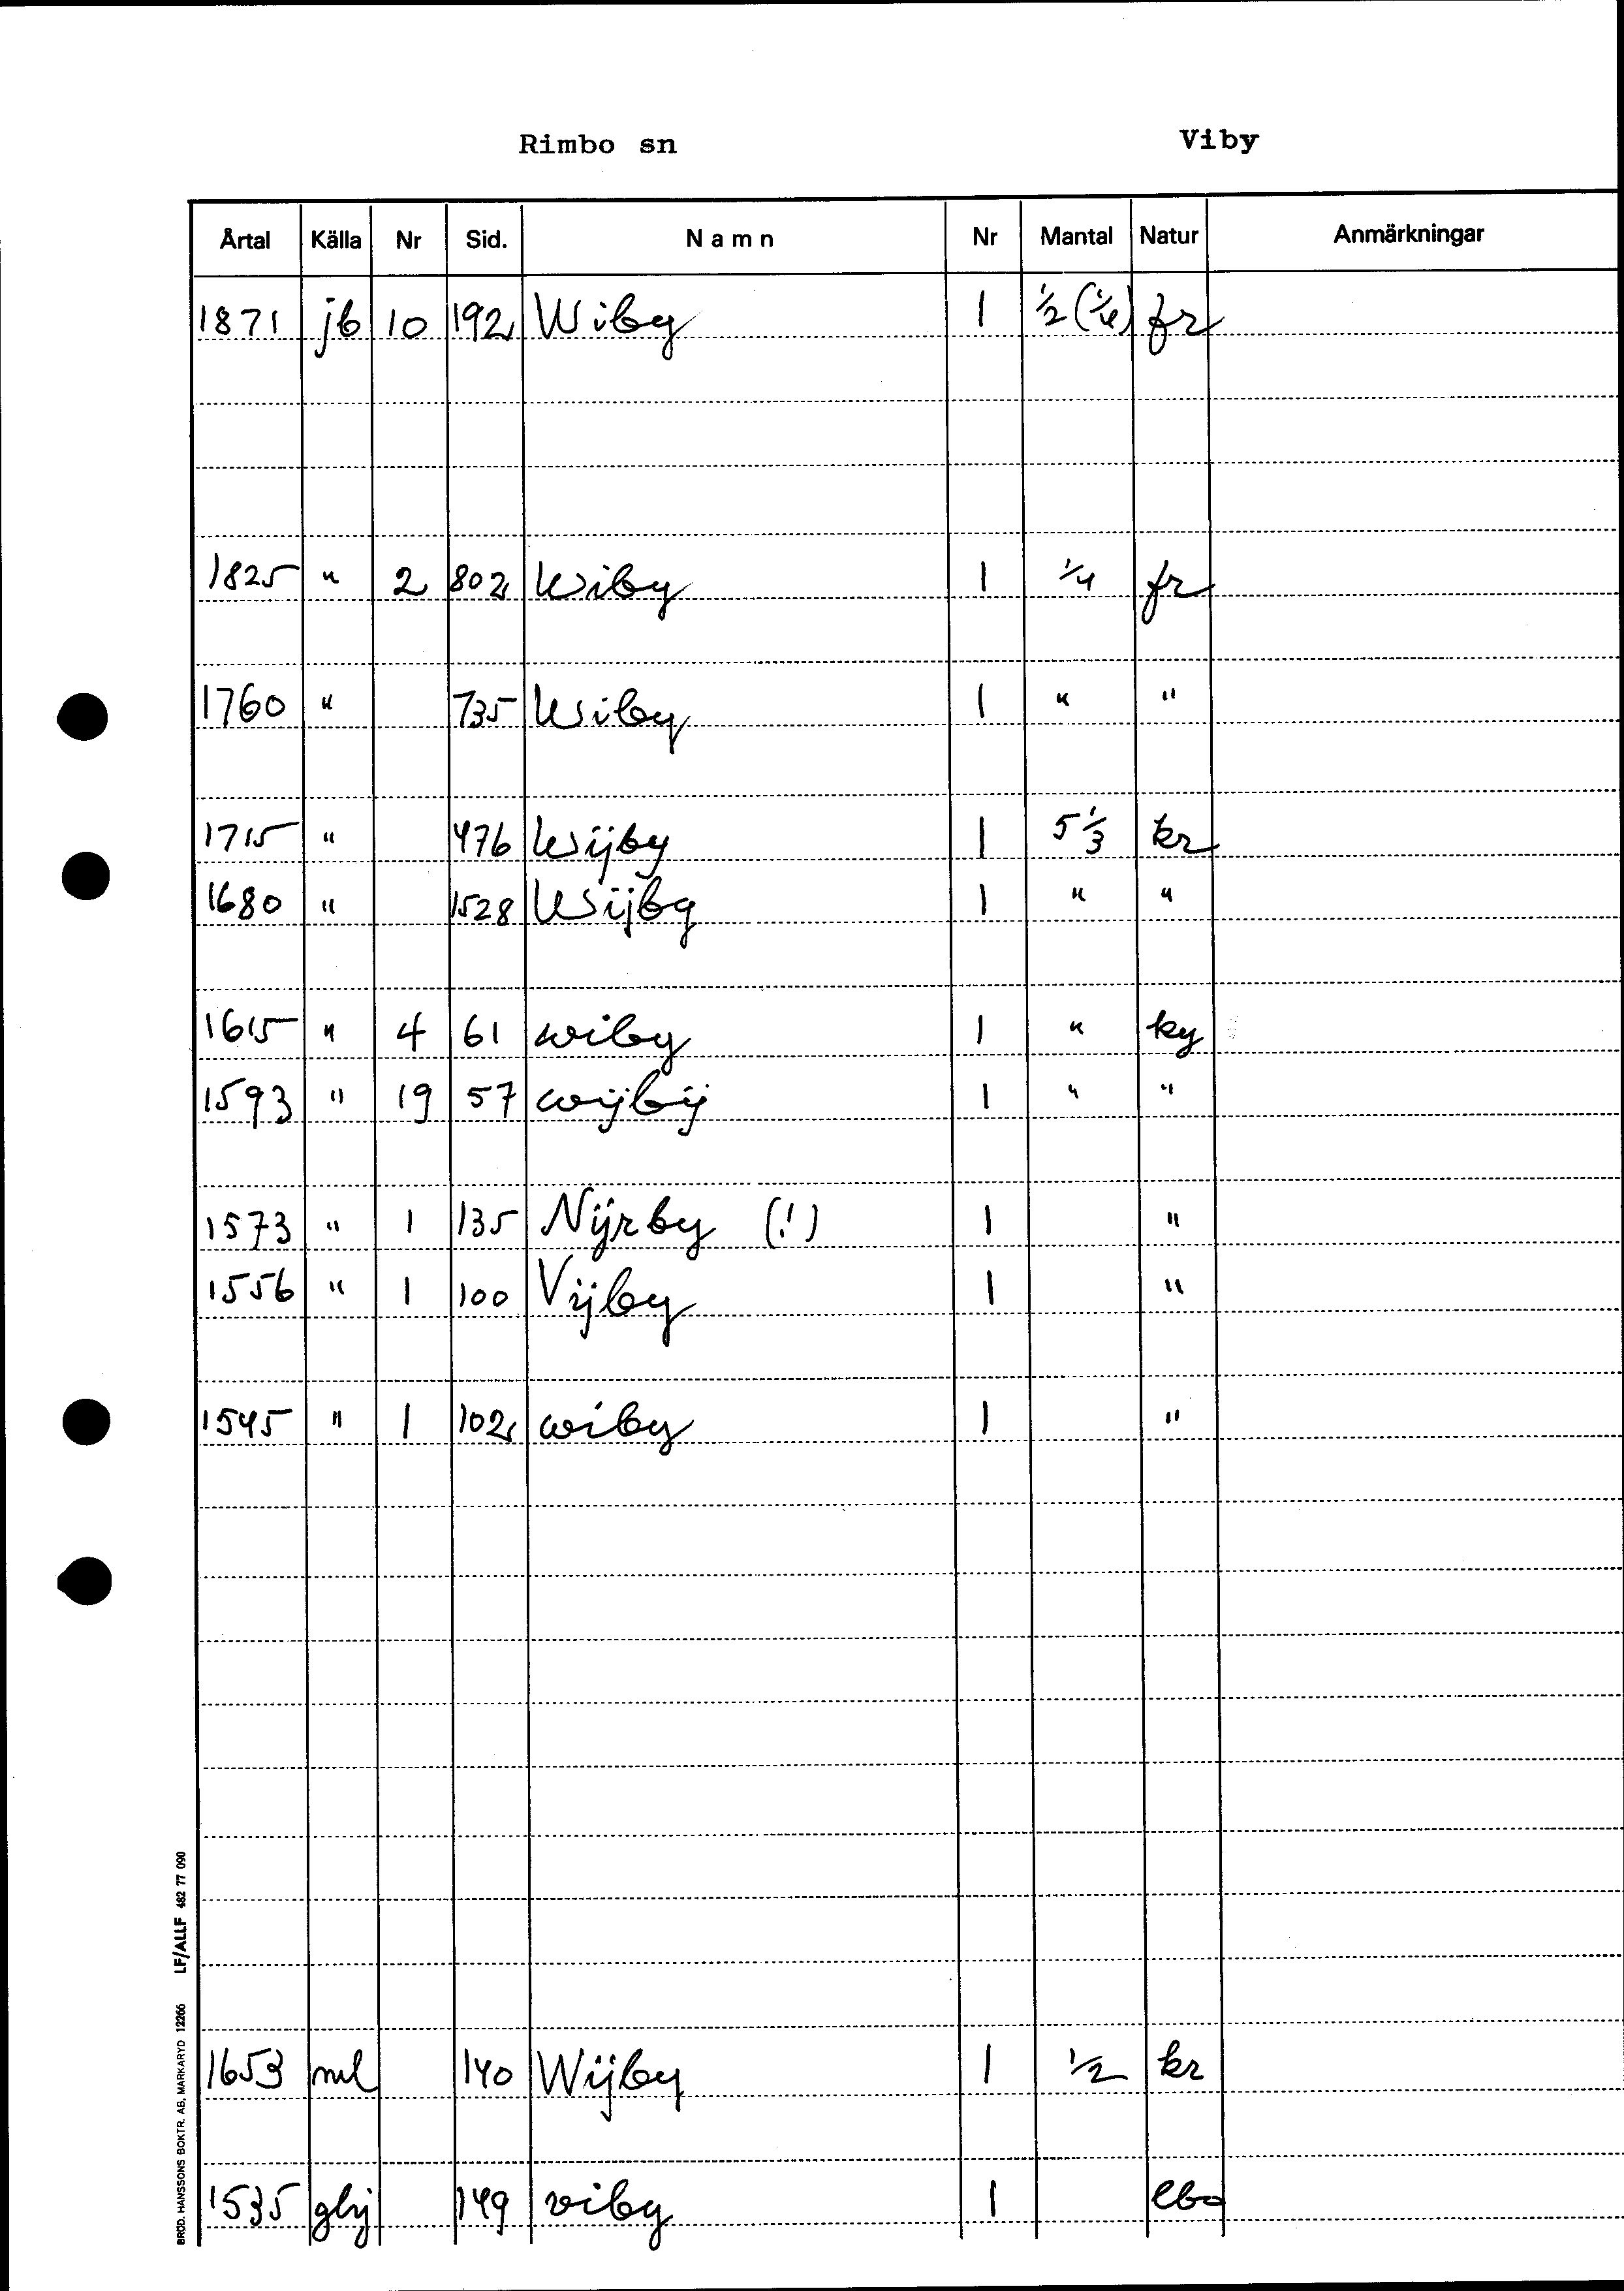 Rimbo sn Viby
Årtal Källa Nr Sid. Namn Nr Mantal Natur Anmärkningar
1871 jb 10 192 Wiby 1 1/2 (1/4) fr
1825 " 2 802 Wiby 1 1/4 fr
1760 " 735 Wiby 1 " "
1715 " 476 Wijby 1 5 1/3 kr
1680 " 1528 Wijby 1 " "
1615 " 4 61 wiby 1 " ky
1593 " 19 57 wijbij 1 " "
1573 " 1 135 Nijrby (!) 1 "
1556 " 1 100 Vijby 1 "
1545 " 1 102 wiby 1 "
1653 ml 140 Wijby 1 1/2 kr
1535 ghj 149 viby 1
BRÖD. HANSSONS BOKTR. AB, MARKARYD 12266 LF/ALLF 482 77 090